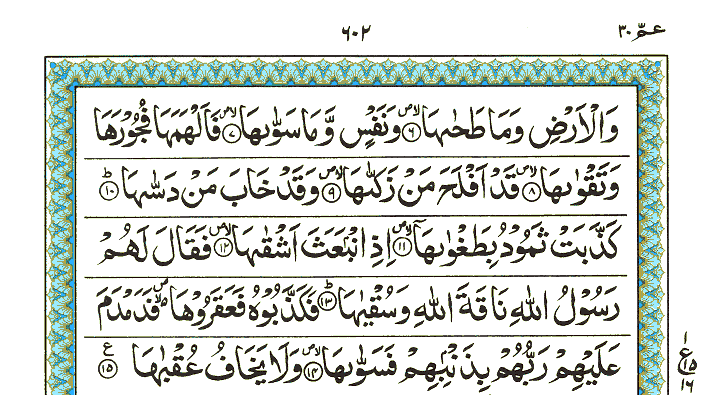 عمّ ٣٠
٦٠٢
وَالْاَرْضِ وَمَا طَحٰىهَا ۪ۙۙ ﴿٦﴾ وَنَفْسٍ وَّمَا سَوّٰىهَا ۪ۙۙ ﴿٧﴾ فَاَلْهَمَهَا فُجُوْرَهَا
وَتَقْوٰىهَا ۪ۙۙ ﴿٨﴾ قَدْ اَفْلَحَ مَنْ زَكّٰىهَا ۪ۙۙ ﴿٩﴾ وَقَدْ خَابَ مَنْ دَسّٰىهَا ؕ ﴿١٠﴾
كَذَّبَتْ ثَمُوْدُ بِطَغْوٰىهَاۤ ۪ۙۙ ﴿١١﴾ اِذِ انْۢبَعَثَ اَشْقٰىهَا ۪ۙۙ ﴿١٢﴾ فَقَالَ لَهُمْ
رَسُوْلُ اللّٰهِ نَاقَةَ اللّٰهِ وَسُقْيٰهَا ؕ ﴿١٣﴾ فَكَذَّبُوْهُ فَعَقَرُوْهَا ۪ۙ فَدَمْدَمَ
عَلَيْهِمْ رَبُّهُمْ بِذَنْۢبِهِمْ فَسَوّٰىهَا ۪ۙۙ ﴿١٤﴾ وَلَا يَخَافُ عُقْبٰهَا ﴿١٥﴾ ع
١
ع ١٥
١٦